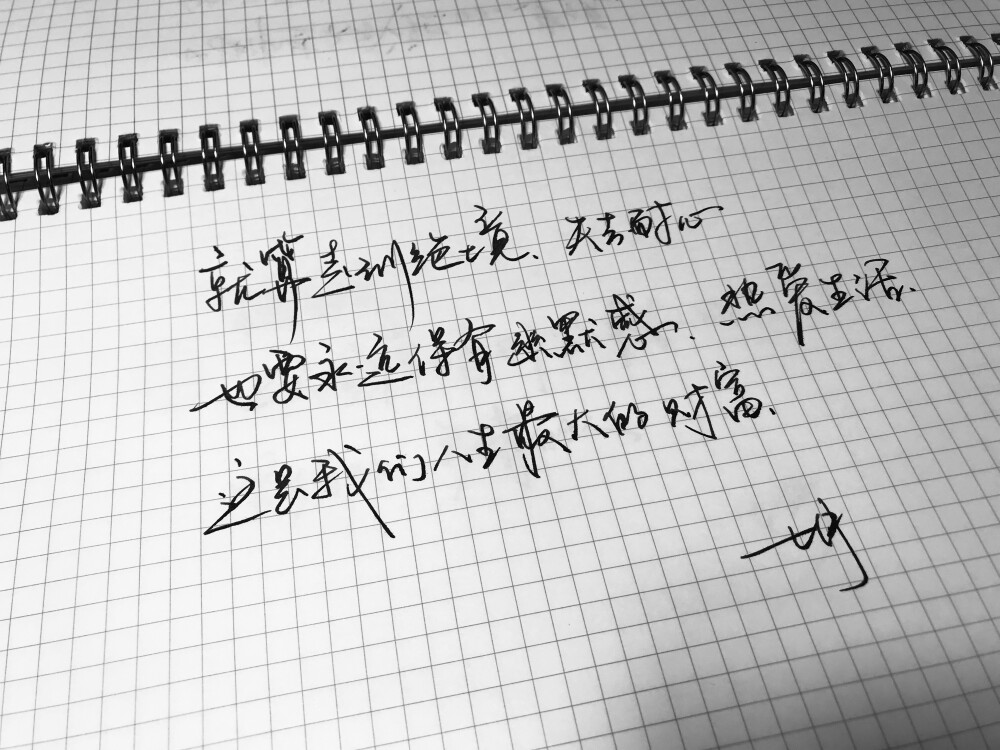 就算走到绝境、失去耐心
也要永远保有幽默感、热爱生活、
这是我们人生最大的财富、